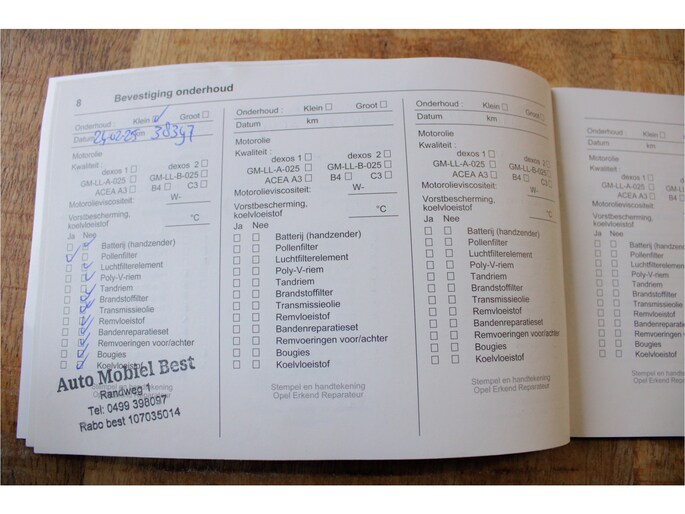 8 Bevestiging onderhoud
Onderhoud : Klein ☐ Groot ☐
Datum 24-02-25 km 38347
Motorolie
Kwaliteit : dexos 1 ☐ dexos 2 ☐
GM-LL-A-025 ☐ GM-LL-B-025 ☐
ACEA A3 ☐ B4 ☐ C3 ☐
Motorolieviscositeit: W-
Vorstbescherming,
koelvloeistof °C
Ja Nee
Batterij (handzender)
Pollenfilter
Luchtfilterelement
Poly-V-riem
Tandriem
Brandstoffilter
Transmissieolie
Remvloeistof
Bandenreparatieset
Remvoeringen voor/achter
Bougies
Koelvloeistof
Auto Mobiel Best
Randweg 1
Tel: 0499 398097
Rabo best 107035014
Onderhoud : Klein ☐ Groot ☐
Datum km
Motorolie
Kwaliteit :
dexos 1 ☐ dexos 2 ☐
GM-LL-A-025 ☐ GM-LL-B-025 ☐
ACEA A3 ☐ B4 ☐ C3 ☐
Motorolieviscositeit: W-
Vorstbescherming,
koelvloeistof °C
Ja Nee
Batterij (handzender)
Pollenfilter
Luchtfilterelement
Poly-V-riem
Tandriem
Brandstoffilter
Transmissieolie
Remvloeistof
Bandenreparatieset
Remvoeringen voor/achter
Bougies
Koelvloeistof
Stempel en handtekening
Opel Erkend Reparateur
Onderhoud : Klein ☐ Groot ☐
Datum km
Motorolie
Kwaliteit :
dexos 1 ☐ dexos 2 ☐
GM-LL-A-025 ☐ GM-LL-B-025 ☐
ACEA A3 ☐ B4 ☐ C3 ☐
Motorolieviscositeit: W-
Vorstbescherming,
koelvloeistof °C
Ja Nee
Batterij (handzender)
Pollenfilter
Luchtfilterelement
Poly-V-riem
Tandriem
Brandstoffilter
Transmissieolie
Remvloeistof
Bandenreparatieset
Remvoeringen voor/achter
Bougies
Koelvloeistof
Stempel en handtekening
Opel Erkend Reparateur
Onderhoud : Klein
Datum km
Motorolie
Kwaliteit :
dexos 1
GM-LL-A-025
ACEA A3
Motorolieviscositeit:
Vorstbescherming,
koelvloeistof
Ja Nee
Batterij (handzender)
Pollenfilter
Luchtfilterelement
Poly-V-riem
Tandriem
Brandstoffilter
Transmissieolie
Remvloeistof
Bandenreparatieset
Remvoeringen
Bougies
Koelvloeistof